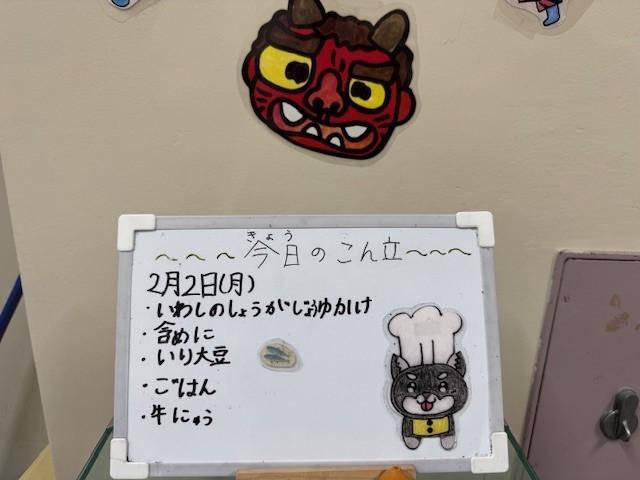 きょう
〜〜〜今日のこん立〜〜〜
2月2日(月)
・いわしのしょうがじょうゆかけ
・含めに
・いり大豆
・ごはん
・牛にゅう